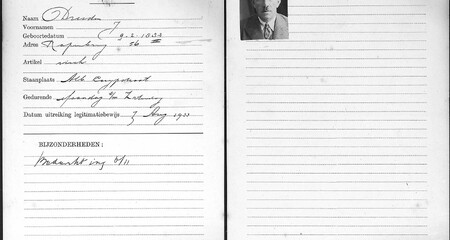 Naam Dresden
Voornamen J
Geboortedatum 9-2-1833
Adres Rapenburg 56
Artikel visch
Staanplaats Alb Cuypstraat
Gedurende Maandag t/m Zaterdag
Datum uitreiking legitimatiebewijs 7 Aug 1911
BIJZONDERHEDEN: